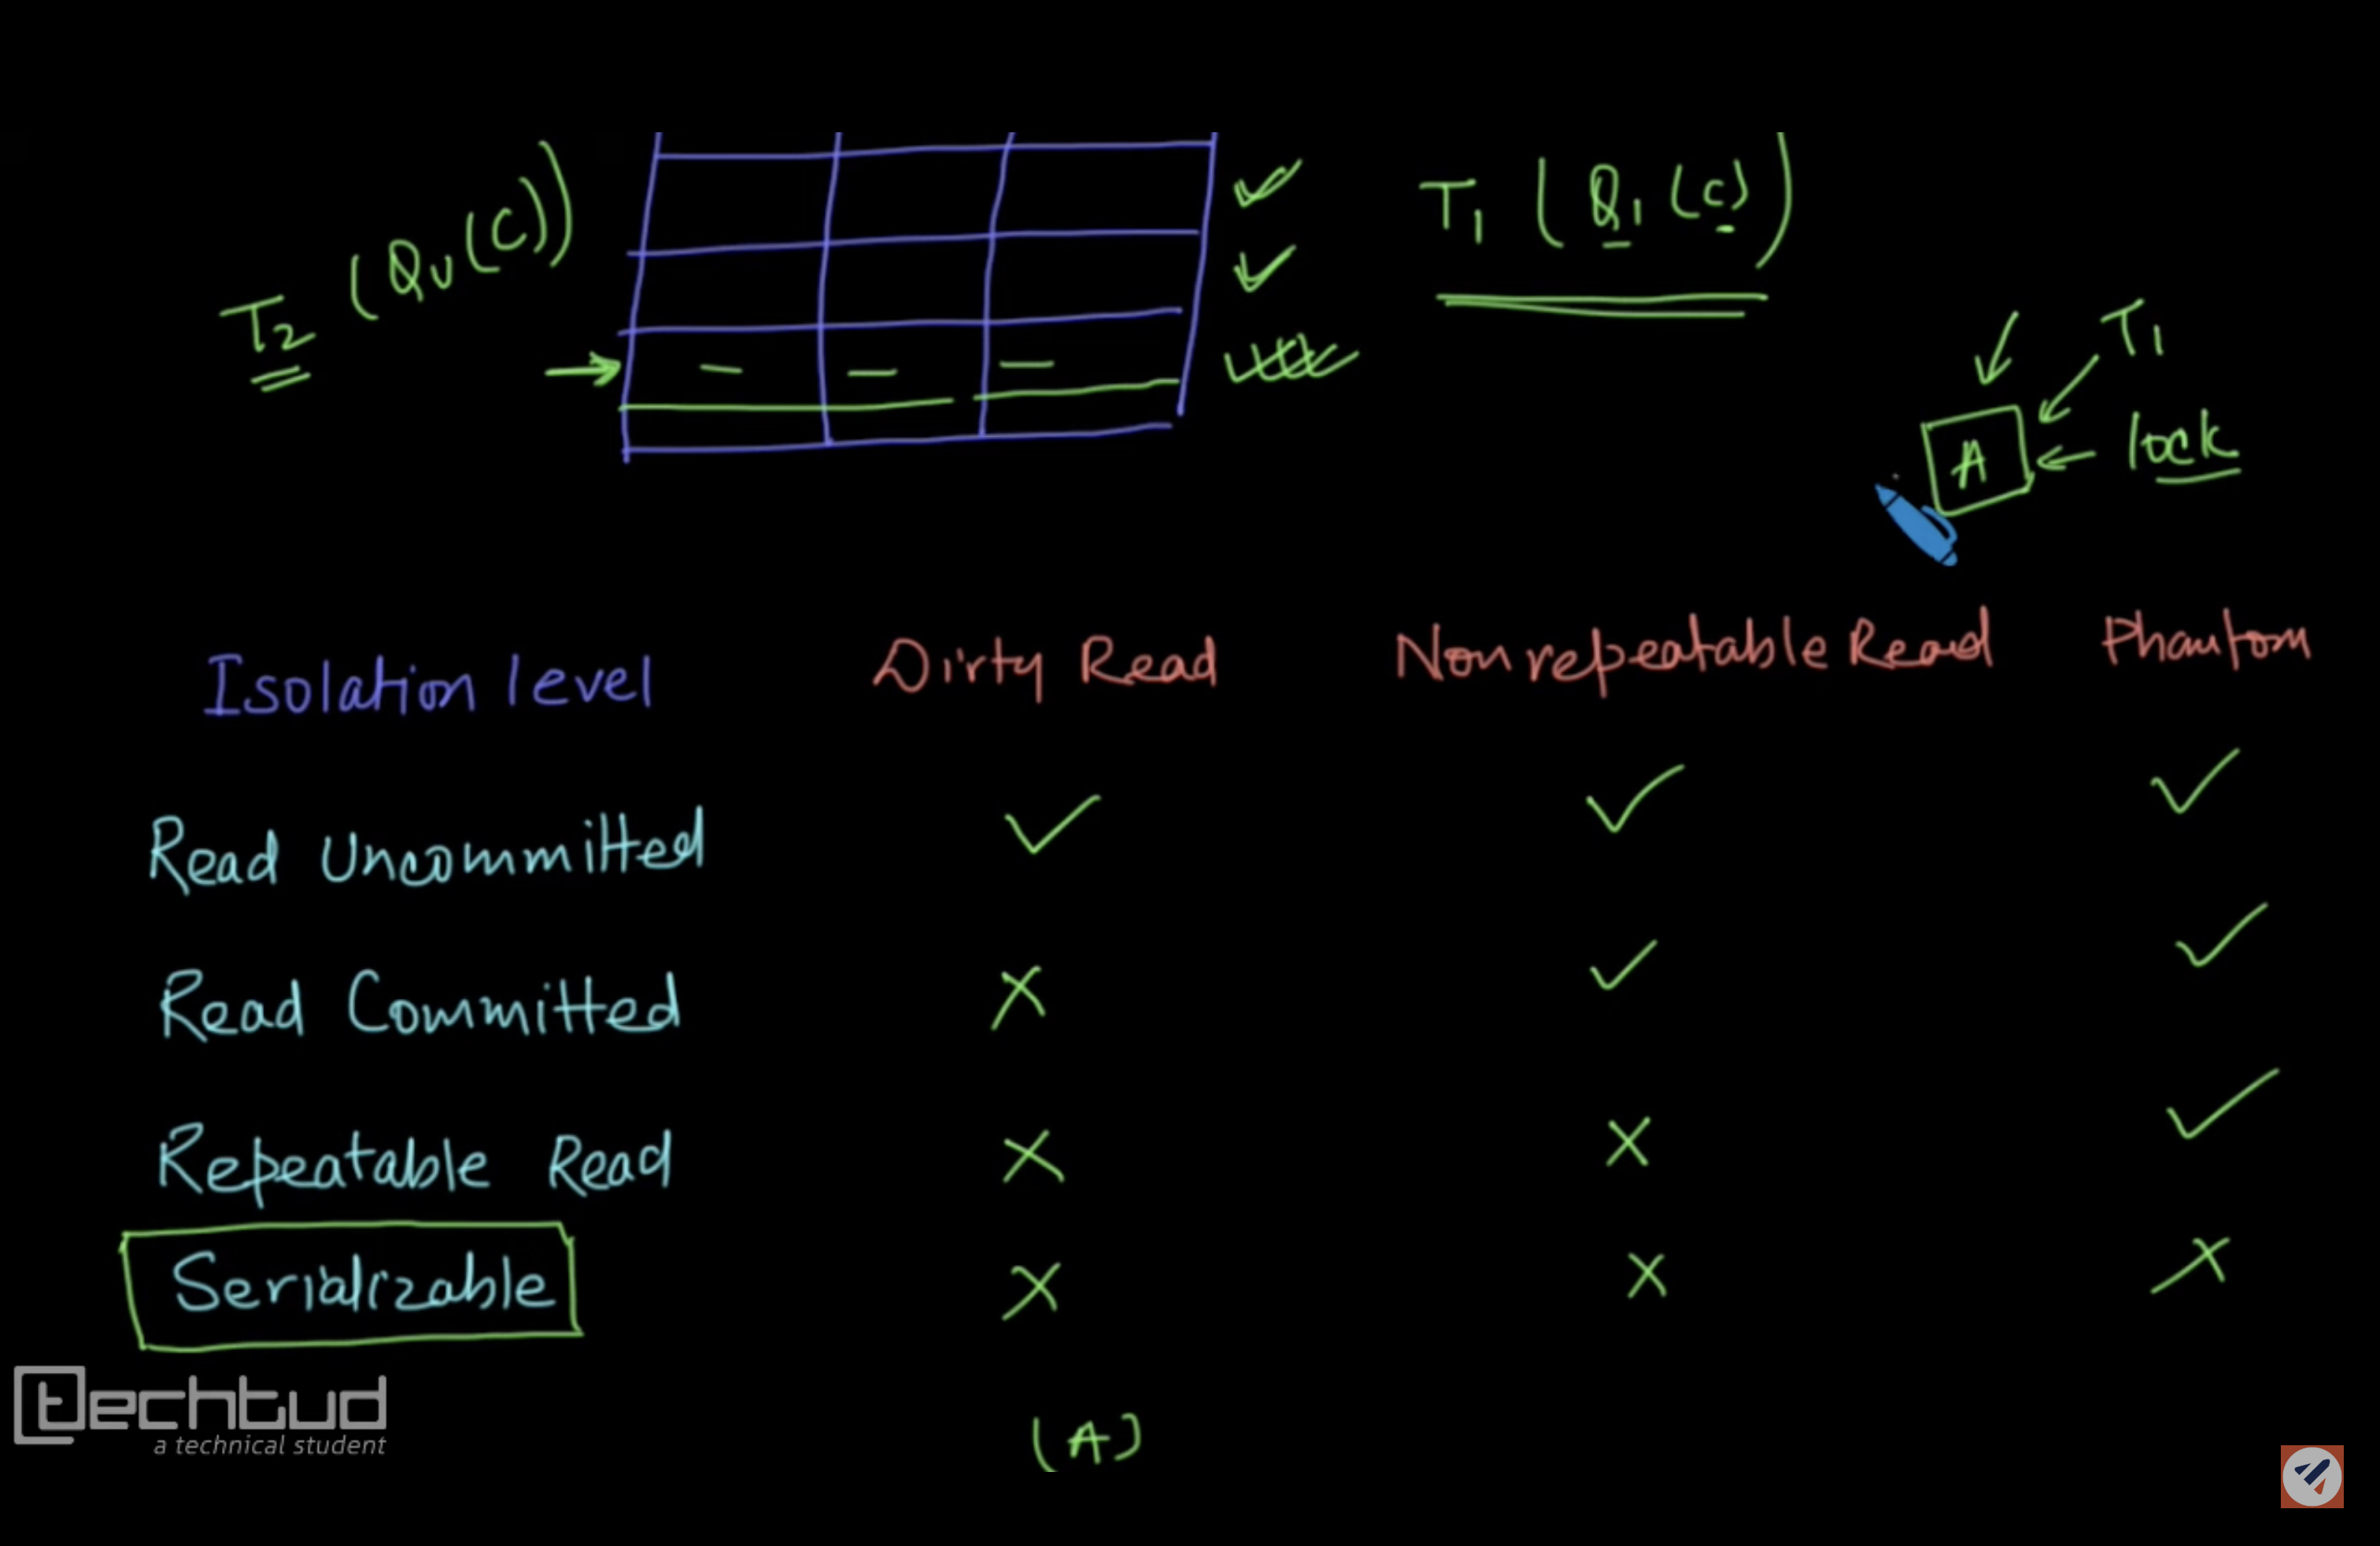 T2 (Qu(C))
T1 (Q1(C))
T1
A
lock
Isolation level Dirty Read Nonrepeatable Read Phantom
Read Uncommitted ✓ ✓ ✓
Read Committed X ✓ ✓
Repeatable Read X X ✓
Serializable X X X
techtud
a technical student
(A)